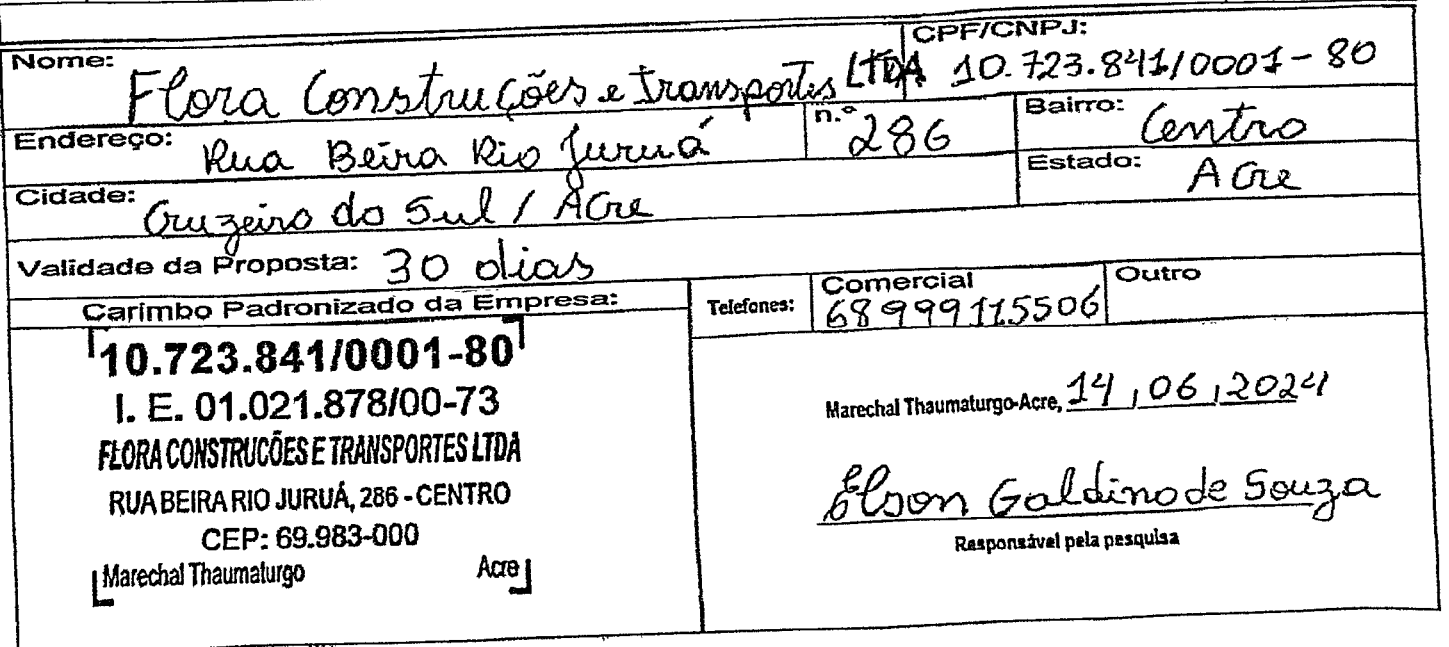 Nome: Flora Construções e transportes LTDA
CPF/CNPJ: 10.723.841/0001-80
Endereço: Rua Beira Rio Juruá
n.º 286
Bairro: Centro
Cidade: Cruzeiro do Sul / Acre
Estado: Acre
Validade da Proposta: 30 dias
Carimbo Padronizado da Empresa:
Telefones:
Comercial
68999115506
Outro
10.723.841/0001-80
I. E. 01.021.878/00-73
FLORA CONSTRUCÕES E TRANSPORTES LTDA
RUA BEIRA RIO JURUÁ, 286 - CENTRO
CEP: 69.983-000
Marechal Thaumaturgo Acre
Marechal Thaumaturgo-Acre, 14 , 06 , 2024
Elson Galdino de Souza
Responsável pela pesquisa